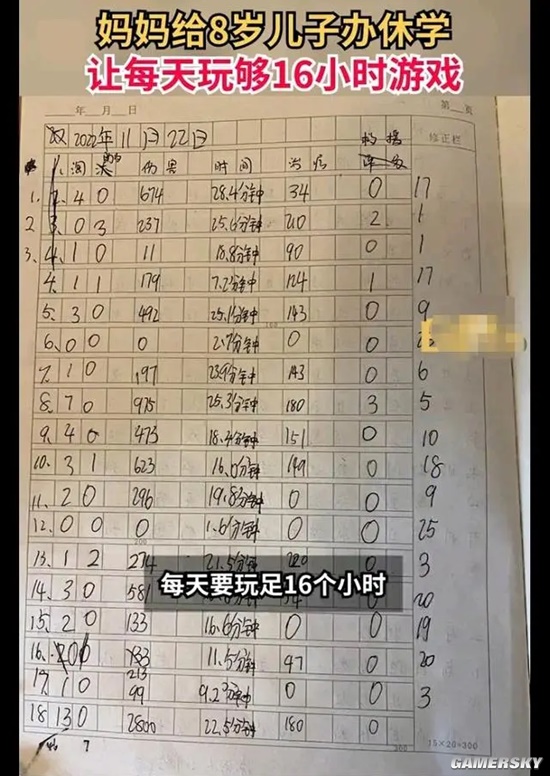 妈妈给8岁儿子办休学
让每天玩够16小时游戏
年 月 日 第 页
2022年11月22日 修正栏
淘 伤害 时间 治疗
1. 4 0 674 28.4分钟 34 0 17
2 0 3 237 25.6分钟 210 2 1
3. 1 0 11 18.8分钟 90 0 1
4. 1 1 179 7.2分钟 124 1 17
5. 3 0 492 25.1分钟 143 0 9
6. 0 0 0 2.7分钟 0 0
7. 1 0 197 23.9分钟 143 0 6
8. 7 0 975 25.3分钟 180 3 5
9. 4 0 473 18.4分钟 151 0 10
10. 3 1 623 16.0分钟 149 0 18
11. 2 0 296 19.8分钟 0 0 9
12. 0 0 0 1.6分钟 0 0 25
13. 1 2 274 21.5分钟 220 0 3
每天要玩足16个小时
14. 3 0 581 0 20
15. 2 0 133 16.6分钟 0 0 19
16. 11.5分钟 47 0 20
213
17. 1 0 99 9.2分钟 0 0 3
18. 13 0 2800 22.5分钟 180 0
15×20=300
GAMERSKY